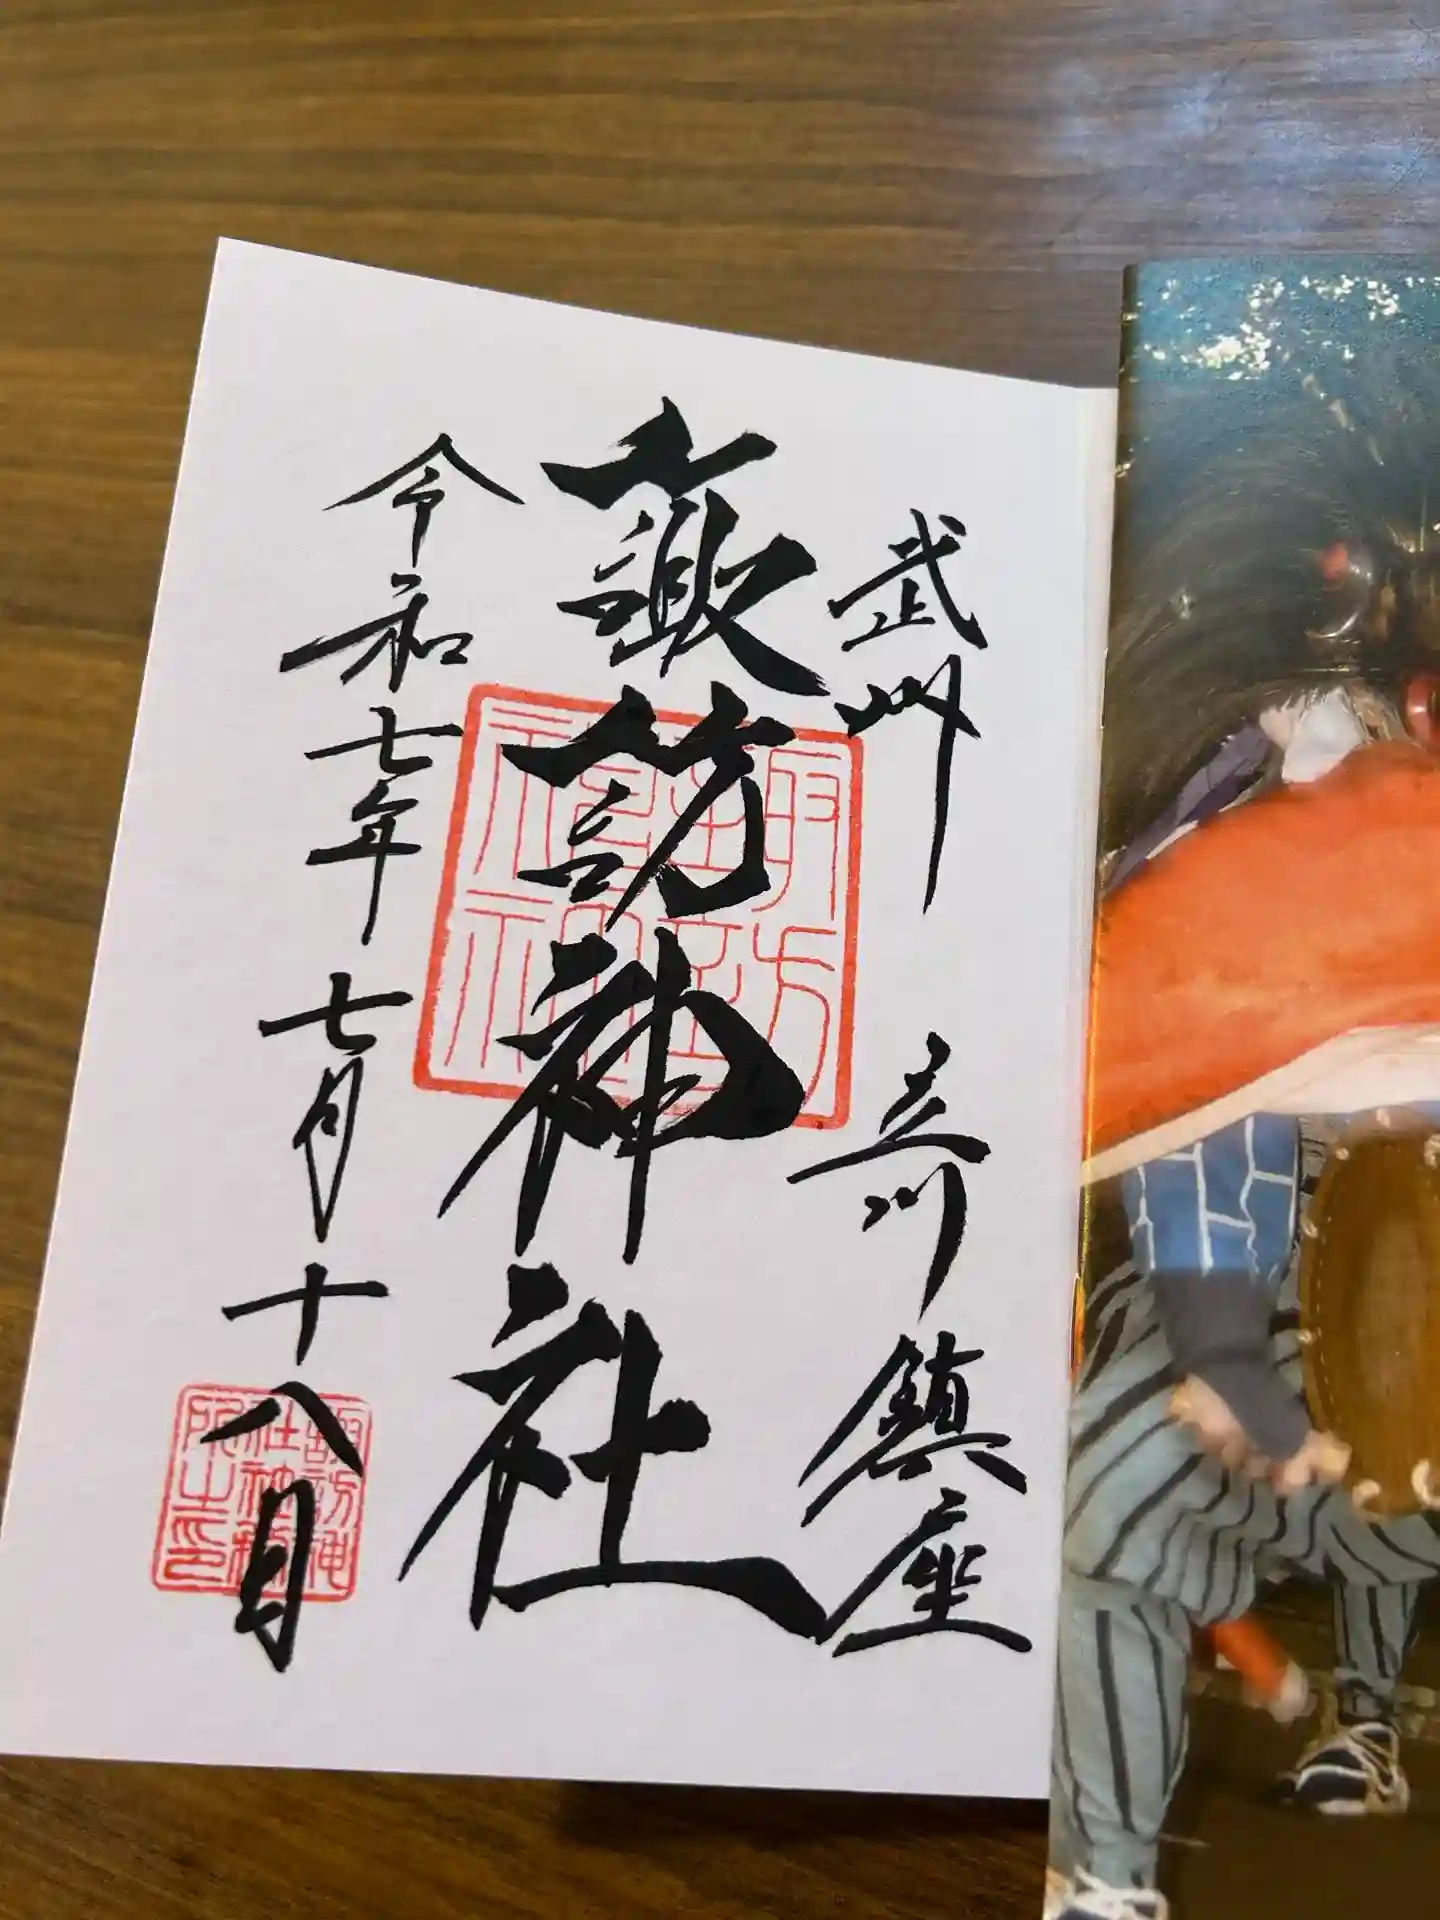 武州 立川鎮座
諏訪神社
令和七年 七月十八日
諏訪神社
諏訪神社社務所之印